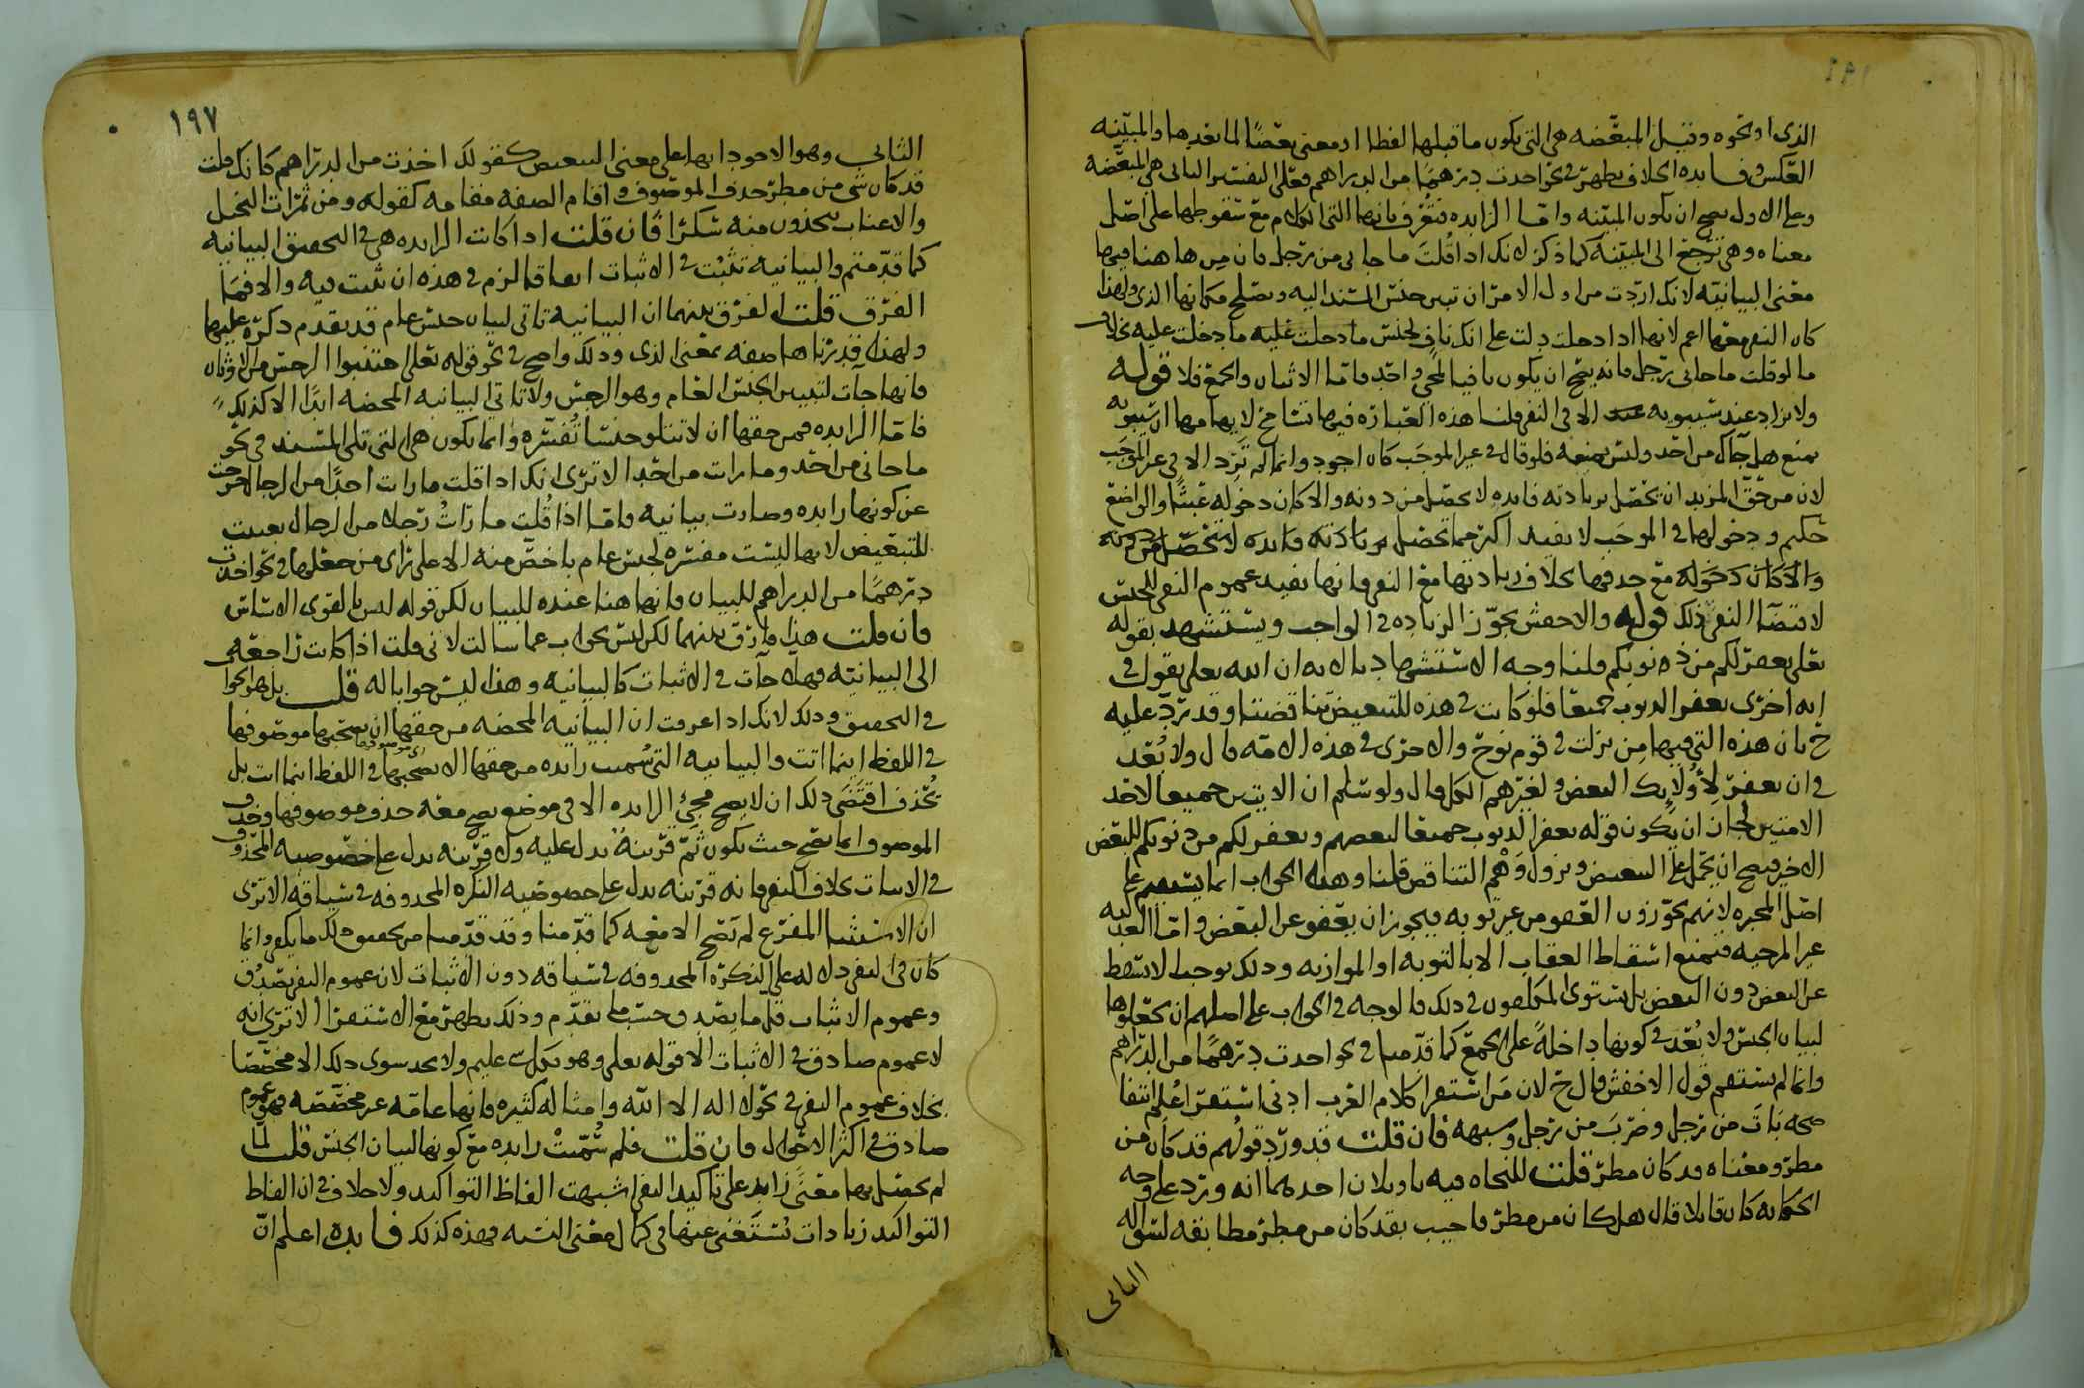 الذي او نحوه وقيل المبعضه هي التي يكون ما قبلها لفظا او معنى بعضًا لما بعدها والمبينه
العكس وفايده الخلاف يظهر في نحو اخذت درهمًا من الدراهم فعلى التفسير الثاني هي المبعضه
وعلى الاول يصح ان يكون المبينه واما الزايده فتعرف بانها التي الكلام مع سقوطها على اصل
معناه وهي ترجع الى المبينه كما ذكر لانك اذا قلت ما جاني من رجل فان من ها هنا فيها
معنى البيانيه لانك اردت من اول الامر ان تبين جنس المسند اليه ويصلح مكانها الذي ولهذا
كان النفي معها اعم لانها اذا دخلت دلت على انك ناف لجنس ما دخلت عليه ما دخلت عليه بخلاف
ما لو قلت ما جاني رجل فانه يصح ان يكون نافيا لمجي واحد فاما الاثنان والجمع فلا قوله
ولا يزاد عند سيبويه الا في النفي قلنا هذه العباره فيها تسامح لايهامها ان سيبويه
يمنع هل جاك من احد وليس يمنعه فلو قال في غير الموجب كان اجود وانما لم تزد الا في غير الموجب
لان من حق المزيد ان تحصل بزيادته فايده لا تحصل من دونه والا كان دخوله عبثًا والواضع
حكيم ودخولها في الموجب لا يفيد اكثر مما تحصل بزيادته فايده لا تحصل من دونه
والا كان دخوله مع حذفها بخلاف زيادتها مع النفي فانها تفيد عموم النفي للجنس
لاقتضا النفي ذلك قوله والاخفش يجوز الزياده في الواجب ويستشهد بقوله
تعلى يغفر لكم من ذنوبكم قلنا وجه الاستشهاد بالايه ان الله تعلى يقول في
ايه اخرى يغفر الذنوب جميعا فلو كانت في هذه للتبعيض تناقضتا وقد يرد عليه
خ بان هذه التي فيها من نزلت في قوم نوح والاخرى في هذه الامه قال ولا بُعد
في ان يغفر لأولايك البعض ولغيرهم الكل قال ولو سلم ان الايتين جميعا لاحد
الامتين لجاز ان يكون قوله يغفر الذنوب جميعا لبعضهم ويغفر لكم من ذنوبكم للبعض
الاخر فيصح ان تحمل على التبعيض ويزول وهم التناقض قلنا وهذا الجواب انما يستقيم على
اصل المجبره لانهم يجوزون العفو من غير توبه فيجوز ان يعفو عن البعض واما العدليه
غير المرجيه فتمنع اسقاط العقاب الا بالتوبه او الموازنه وذلك يوجب الا يسقط
عن البعض دون البعض بل يستوى المكلفون في ذلك فالوجه في الجواب على اصلهم ان يجعلوها
لبيان الجنس ولا بُعد في كونها داخلة على الجمع كما قدمنا في نحو اخذت درهمًا من الدراهم
وانما لم يستقم قول الاخفش قال خ لان من استقرا كلام العرب ادنى استقرا علم انتفا
صحه بات من رجل وضرب من رجل وشبهه فان قلت قد ورد قولهم قد كان من
مطر ومعناه قد كان مطر قلت للنحاه فيه تاويلان احدهما انه ورد على وجه
الحكايه كان قايلا قال هل كان من مطر فاجيب بقد كان من مطر مطابقه لسواله
الثاني
١٩٧
الثاني وهو الاجود انها على معنى التبعيض كقولك اخذت من الدراهم كانك قلت
قد كان شي من مطر حذف الموصوف واقام الصفه مقامه كقوله ومن ثمرات النخيل
والاعناب تتخذون منه سكرًا فان قلت اذا كانت الزايده هي في التحقيق البيانيه
كما قدمتم والبيانيه تثبت في الاثبات اتفاقا لزم في هذه ان تثبت فيه والا فما
الفرق قلت الفرق بينهما ان البيانيه تاتي لبيان جنس عام قد تقدم ذكره عليها
ولهذا قدرناها صفه بمعنى الذي وذلك واضح في نحو قوله تعلى اجتنبوا الرجس من الاوثان
فانها جآت لتبيين الجنس العام وهو الرجس ولا تاتي البيانيه المحضه ابدًا الا كذلك
فاما الزايده فمن حقها ان لا تتلو جنسا تُفسره وانما تكون هي التي تلي المسند في نحو
ما جاني من احد وما رايت من احد الا ترى انك اذا قلت ما رايت احدًا من الرجال خرجت
عن كونها زايده وصارت بيانيه واما اذا قُلت ما رأيتُ رجلا من الرجال تعينت
للتبعيض لانها ليست مفسره لجنس عام باخص منه الا على راى من جعلها في نحو اخذت
درهمًا من الدراهم للبيان فانها هنا عنده للبيان لكن قوله ليس بالقوى
فان قلت هذا فارق بينهما لكن ليس بجواب عما سالت لاني قلت اذا كانت راجعه
الى البيانيه فهلا جآت في الاثبات كالبيانيه وهذا ليس جوابا له قلت بل هو الجواب
في التحقيق وذلك لانك اذا عرفت ان البيانيه المحضه من حقها ان يصحبها موصوفها
في اللفظ اينما اتت والبيانيه التي سُميت زايده من حقها الا يصحبها موصوفها في اللفظ اينما اتت بل
يُحذف اقتضى ذلك ان لا يصح مجي الزايده الا في موضع يصح معه حذف موصوفها وحذف
الموصوف انما يصح حيث يكون ثم قرينة تدل عليه ولا قرينه تدل على خصوصيه المحذوف
في الاثبات بخلاف النفي فانه قرينه تدل على خصوصيه النكره المحذوفه في سياقه الا ترى
ان الاستثنا المفرغ لم يصح الا معه كما قدمنا وقد قدمنا من تحقيق ذلك ما يكفي وانما
كان في النفي دلاله على النكره المحذوفه في سياقه دون الاثبات لان عموم النفي يصدُق
وعموم الاثبات قل ما يصدق حسب ما تقدم وذلك يظهر مع الاستقرا الا ترى انه
لا عموم صادق في الاثبات الا قوله تعلى وهو بكل شي عليم ولا تجد سوى ذلك الا مخصصا
بخلاف عموم النفي في نحو لا اله الا الله وامثاله كثيره فانها عامه غير مخصصه فهو عموم
صادق في اكثر الاحوال فان قلت فلم سُميت زايده مع كونها لبيان الجنس قلت لما
لم يحصل بها معنًى زايد على تاكيد النفي اشبهت الفاظ التواكيد ولا خلاف في ان الفاظ
التواكيد زيادات تُستغنى عنها في كمال معنى فهذه كذلك فايده اعلم ان